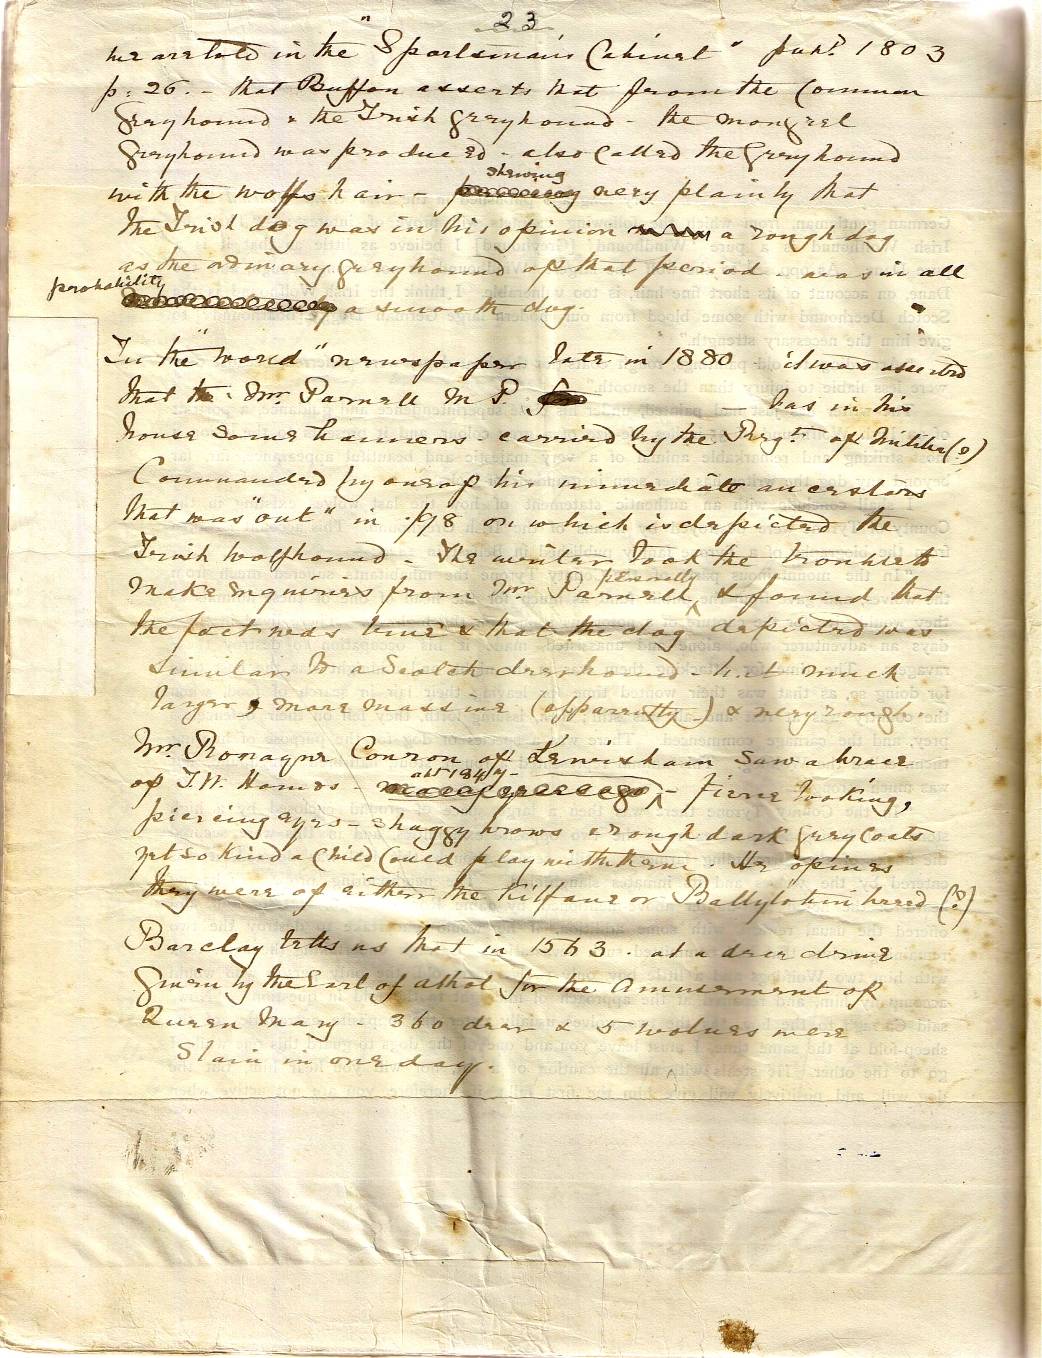 23
we are told in the "Sportsman's Cabinet" pubd. 1803
p: 26. - that Buffon asserts that from the Common
Greyhound & the Irish Greyhound - the mongrel
Greyhound was produced - also called the Greyhound
with the wolfs hair - shewing very plainly that
the Irish dog was in his opinion a rough dog
as the ordinary greyhound of that period - was in all
probability a smooth dog
In the "World" newspaper late in 1880 it was asserted
that Mr Parnell M P. has in his
house some banners carried by the Regt. of Militia (?)
Commanded by one of his immediate ancestors
that was "out" in .98 on which is depicted the
Irish Wolfhound - The writer took the trouble to
make enquiries from Mr Parnell personally & found that
the fact was true & that the dog depicted was
similar to a Scotch deerhound - but much
larger, more massive (apparently) & very rough.
Mr. Romayne Conron of Lewisham saw a brace
of I.W. Hounds - abt 1847 - fierce looking,
piercing eyes - shaggy brows & rough dark grey coats
yet so kind a Child Could play with them. He opines
they were of either the Kilfane or Ballytobin breed (?)
Barclay tells us that in 1563. at a deer drive
given by the Earl of Athol for the Amusement of
Queen Mary - 360 deer & 5 wolves were
Slain in one day.